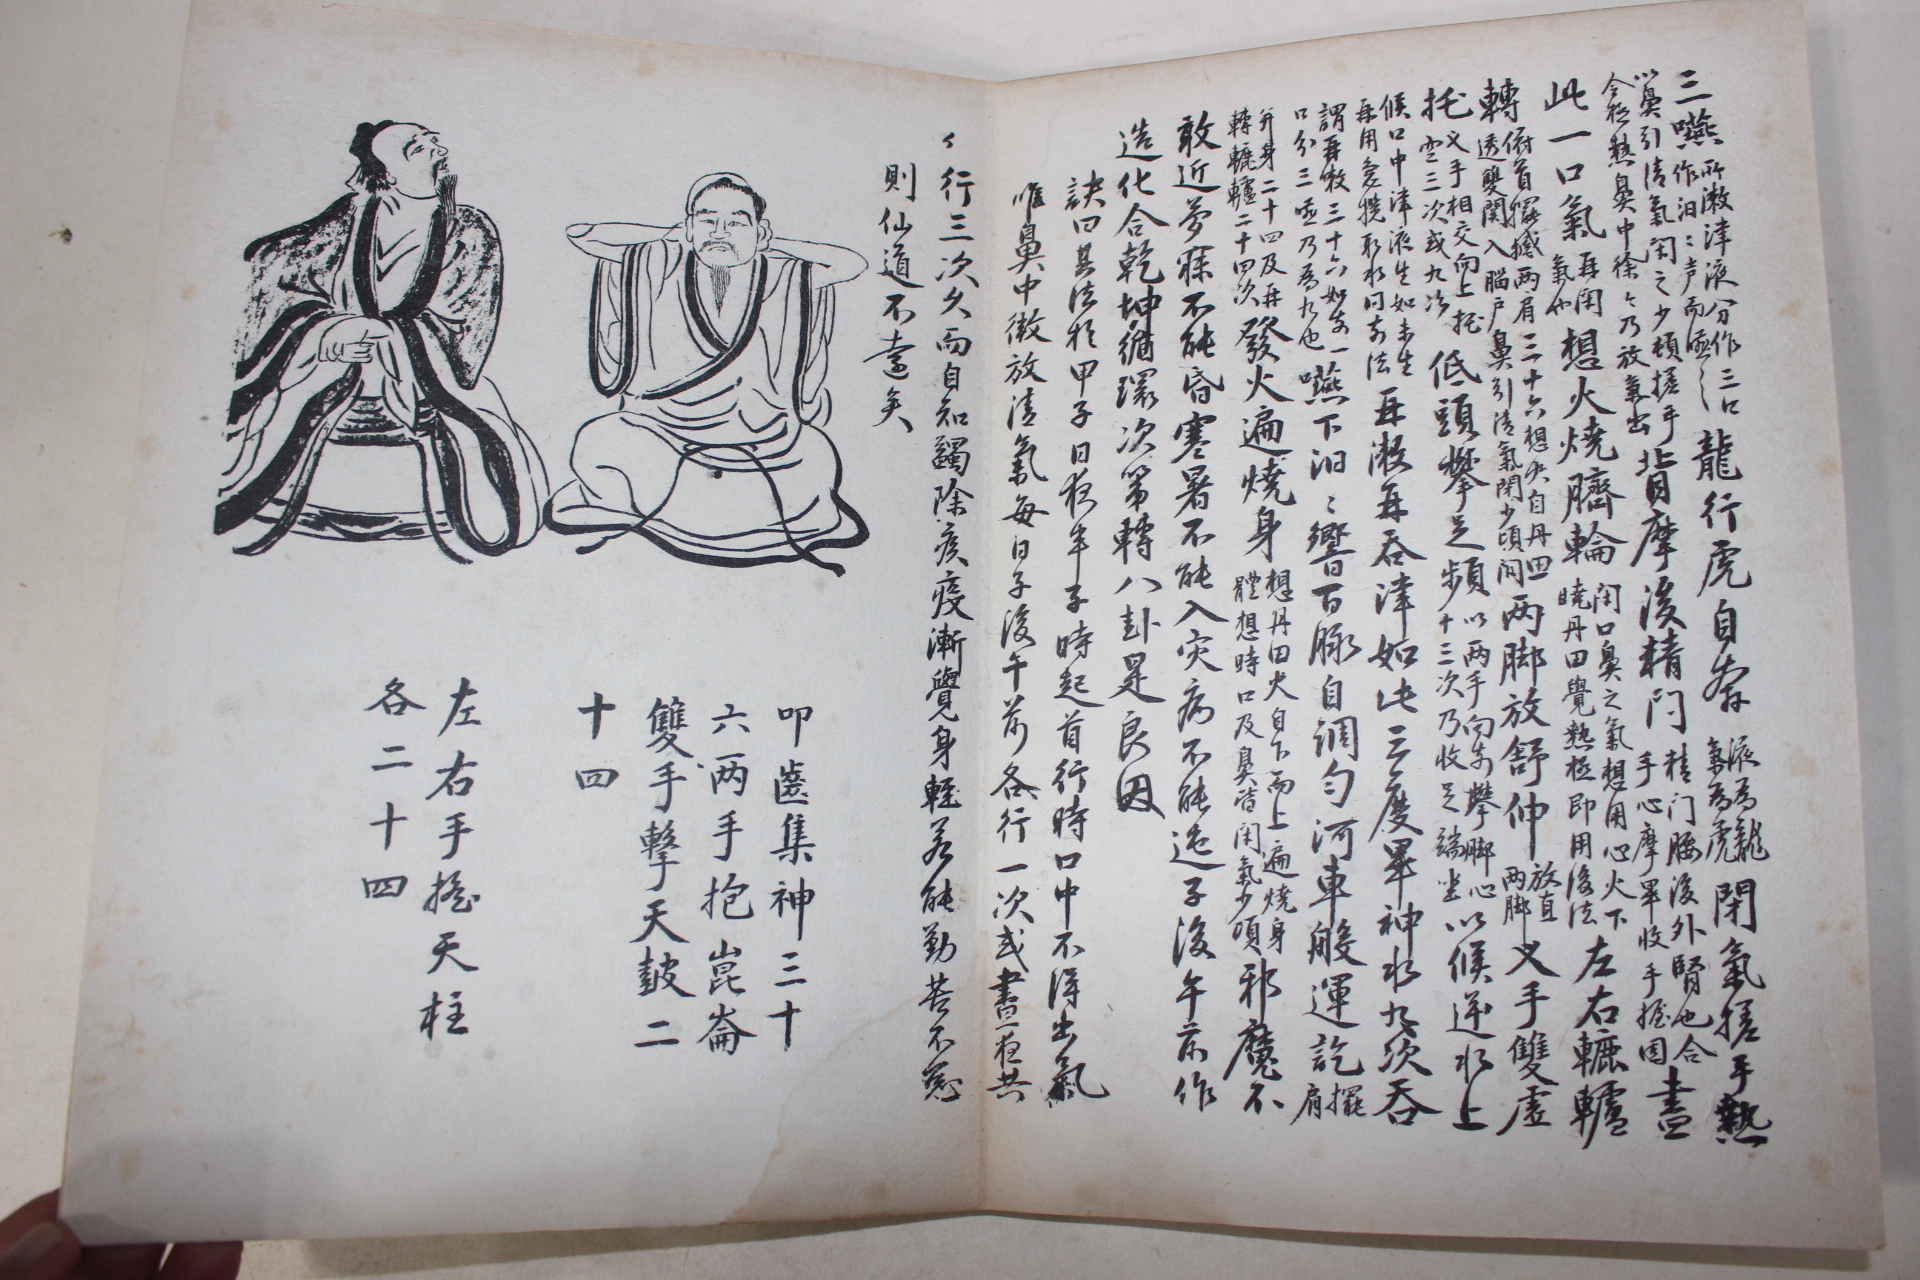 三嚥 所漱津液分作三口 作汩〻声而嚥之 龍行虎自奔 液為龍 氣為虎 閉氣搓手熱
以鼻引清氣閉之少頃搓手 令極熱鼻中徐〻乃放氣出 背摩後精門 精門腰後外腎也合 手心摩畢收手握固 盡
此一口氣 再閉 氣也 想火燒臍輪 閉口鼻之氣想用心火下 燒丹田覺熱極即用後法 左右轆轤
轉 俯首擺撼两肩三十六想火自丹田 透雙関入脳户鼻引清氣閉少頃间 两脚放舒伸 放直 两脚 叉手雙虛
托 叉手相交向上托 空三次或九次 低頭攀足頻 以两手向前攀脚心 十三次乃收足端坐 以候逆水上
候口中津液生如未生 再用急攪取水同前法 再漱再吞津如此三度畢神水九次吞
謂再漱三十六如前一 口分三嚥乃為九也 嚥下汩〻響百脉自調匀河車般運訖 擺 肩
并身二十四及再 轉轆轤二十四次 發火遍燒身 想丹田火自下而上遍燒身 體想時口及鼻皆閉氣少頃 邪魔不
敢近夢寐不能昏寒暑不能入灾病不能迍子後午前作
造化合乾坤循環次第轉八卦是良因
訣曰其法於甲子日夜半子時起首行時口中不得出氣
唯鼻中微放清氣每日子後午前各行一次或晝夜共
行三次久而自知蠲除疾疫漸覺身輕若能勤苦不怠
則仙道不遠矣
叩齒集神三十
六两手抱崑崙
雙手擊天鼓二
十四
左右手搖天柱
各二十四